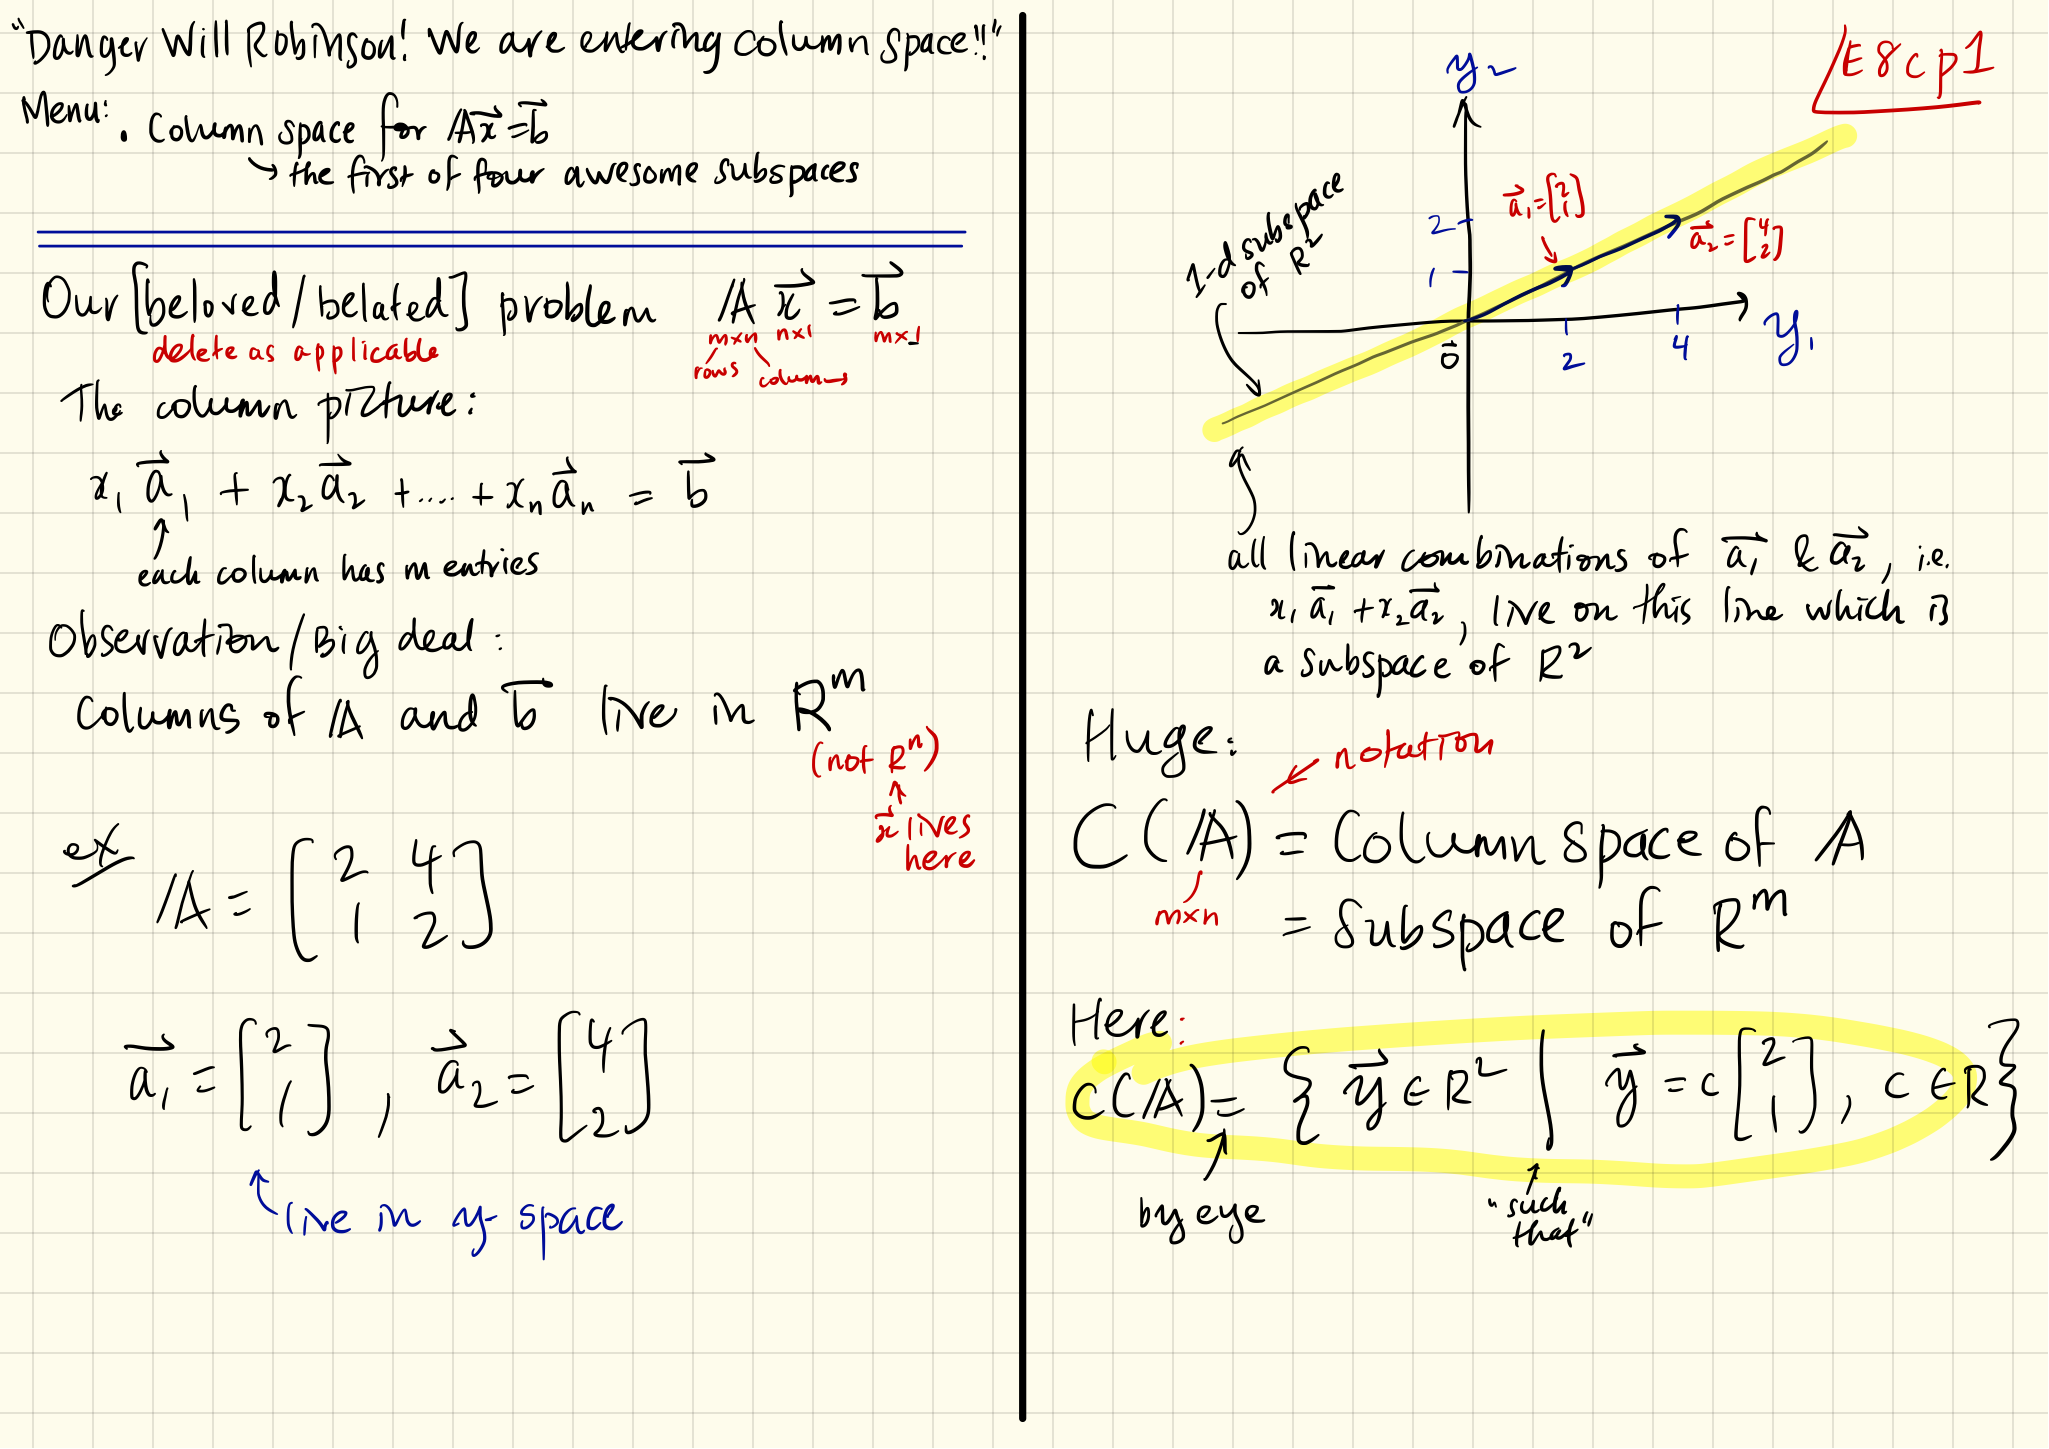 "Danger Will Robinson! We are entering column space!!"
Menu:
. Column space for 𝔸x⃗=b⃗
↳ the first of four awesome subspaces
Our [beloved/belated] problem 𝔸 x⃗ = b⃗
m×n n×1 m×1
delete as applicable
rows columns
The column picture:
x₁a⃗₁ + x₂a⃗₂ +....+ xₙa⃗ₙ = b⃗
each column has m entries
Observation/Big deal:
Columns of 𝔸 and b⃗ live in Rᵐ
(not Rⁿ)
x⃗ lives
here
ex
𝔸 = [2 4
1 2]
a⃗₁ = [2
1] , a⃗₂ = [4
2]
live in y-space
E8cp1
y₂
1-d subspace
of R²
a⃗₁=[2
1]
a⃗₂=[4
2]
2
1
0⃗
2
4
y₁
all linear combinations of a⃗₁ & a⃗₂, i.e.
x₁a⃗₁+x₂a⃗₂, live on this line which is
a subspace of R²
Huge:
notation
C(𝔸) = Column space of 𝔸
m×n
= Subspace of Rᵐ
Here:
C(𝔸) = { y⃗ ∈ R² | y⃗ = c [2
1], c ∈ R }
by eye
"such
that"